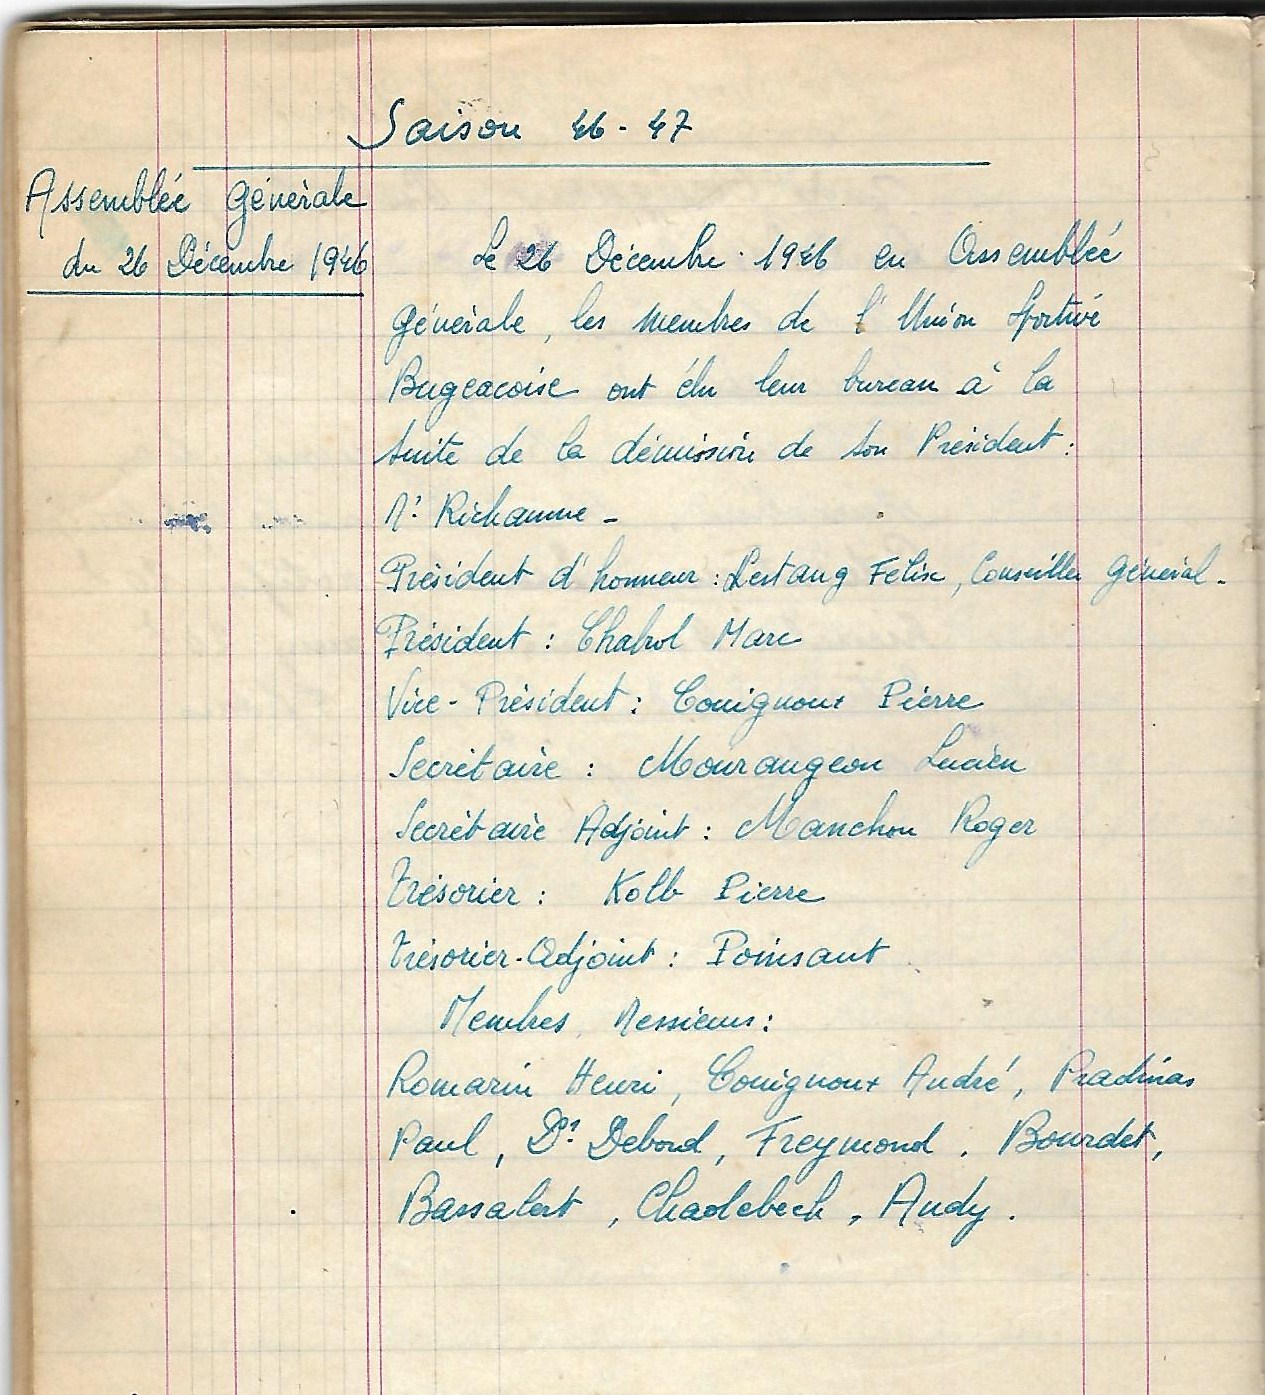 Saison 46-47
Assemblée Générale
du 26 Décembre 1946
Le 26 Décembre 1946 en Assemblée
Générale, les membres de l'Union Sportive
Bugeacoise ont élu leur bureau à la
suite de la démission de son Président :
Mr Richaume -
Président d'honneur : Lestang Felix, Conseiller Général -
Président : Chabrol Marc
Vice-Président : Couignoux Pierre
Secrétaire : Mourangeon Lucien
Secrétaire Adjoint : Manchon Roger
Trésorier : Kolb Pierre
Trésorier-Adjoint : Poinsaut
Membres Messieurs :
Romarin Henri, Couignoux André, Pradinas
Paul, Dr Debord, Freymond, Bourdet,
Bassalert, Chadebech, Audy.